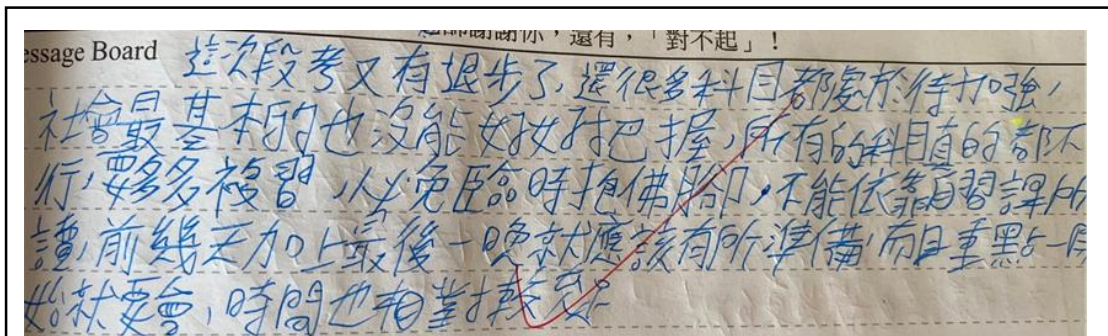 師謝謝你，還有，「對不起」！
essage Board 這次段考又有退步了，還很多科目都處於待加強，
社會最基本的也沒能好好把握，所有的科目真的都不
行，要多多複習，以免臨時抱佛腳，不能依靠自習課所
讀，前幾天加上最後一晚就應該有所準備，而且重點一開
始就要會，時間也相對較充足